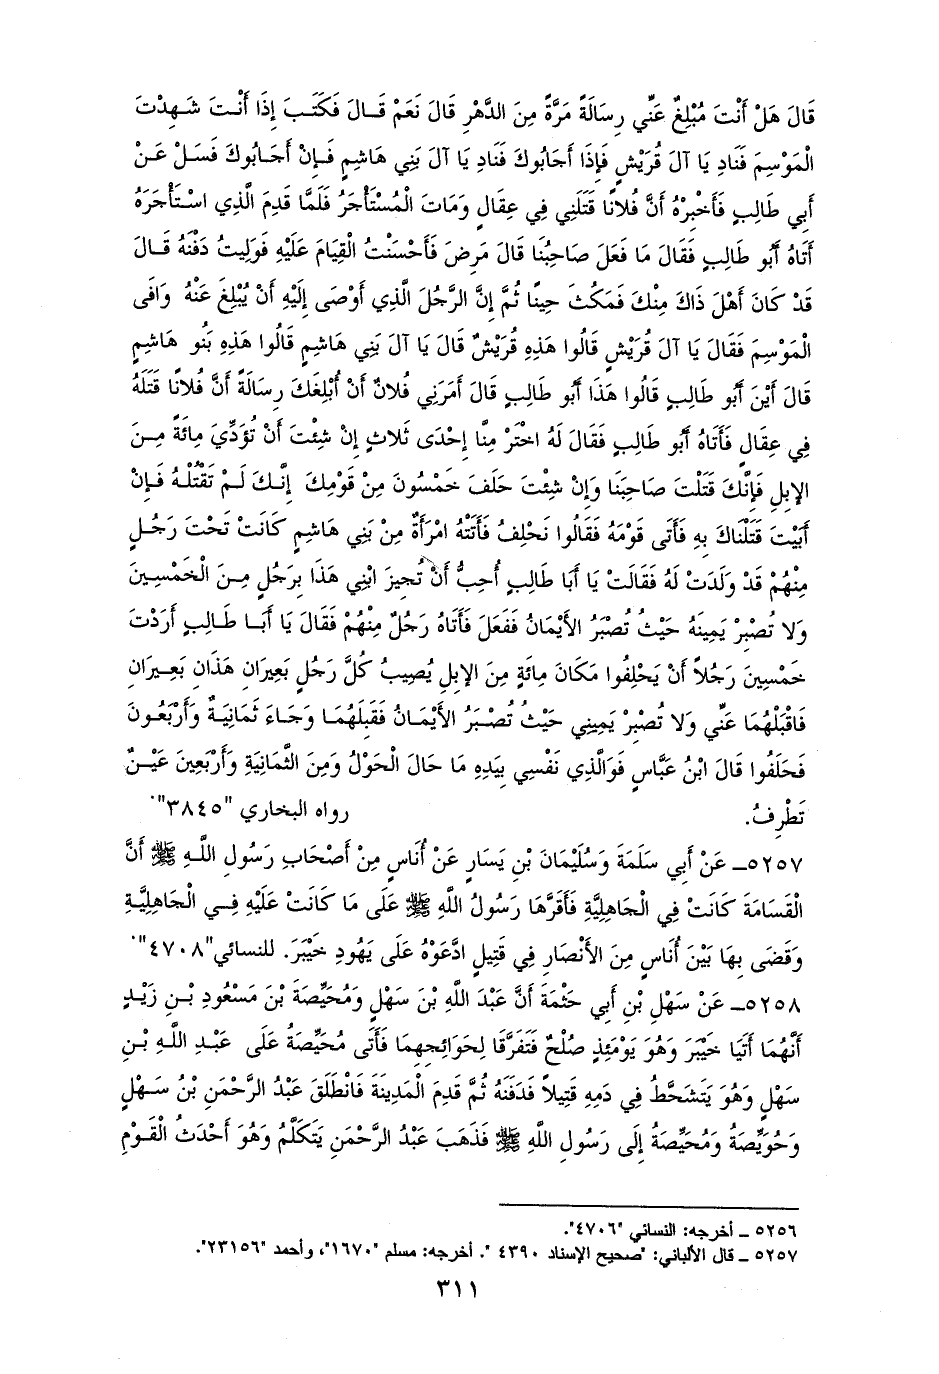 قَالَ هَلْ أَنْتَ مُبْلِغٌ عَنِّي رِسَالَةً مَرَّةً مِنَ الدَّهْرِ قَالَ نَعَمْ قَالَ فَكَتَبَ إِذَا أَنْتَ شَهِدْتَ
الْمَوْسِمَ فَنَادِ يَا آلَ قُرَيْشٍ فَإِذَا أَجَابُوكَ فَنَادِ يَا آلَ بَنِي هَاشِمٍ فَإِنْ أَجَابُوكَ فَسَلْ عَنْ
أَبِي طَالِبٍ فَأَخْبِرْهُ أَنَّ فُلَانًا قَتَلَنِي فِي عِقَالٍ وَمَاتَ الْمُسْتَأْجَرُ فَلَمَّا قَدِمَ الَّذِي اسْتَأْجَرَهُ
أَتَاهُ أَبُو طَالِبٍ فَقَالَ مَا فَعَلَ صَاحِبُنَا قَالَ مَرِضَ فَأَحْسَنْتُ الْقِيَامَ عَلَيْهِ فَوَلِيتُ دَفْنَهُ قَالَ
قَدْ كَانَ أَهْلَ ذَاكَ مِنْكَ فَمَكُثَ حِينًا ثُمَّ إِنَّ الرَّجُلَ الَّذِي أَوْصَى إِلَيْهِ أَنْ يُبْلِغَ عَنْهُ وَافَى
الْمَوْسِمَ فَقَالَ يَا آلَ قُرَيْشٍ قَالُوا هَذِهِ قُرَيْشٌ قَالَ يَا آلَ بَنِي هَاشِمٍ قَالُوا هَذِهِ بَنُو هَاشِمٍ
قَالَ أَيْنَ أَبُو طَالِبٍ قَالُوا هَذَا أَبُو طَالِبٍ قَالَ أَمَرَنِي فُلَانٌ أَنْ أُبْلِغَكَ رِسَالَةً أَنَّ فُلَانًا قَتَلَهُ
فِي عِقَالٍ فَأَتَاهُ أَبُو طَالِبٍ فَقَالَ لَهُ اخْتَرْ مِنَّا إِحْدَى ثَلَاثٍ إِنْ شِئْتَ أَنْ تُؤَدِّيَ مِائَةً مِنَ
الإِبِلِ فَإِنَّكَ قَتَلْتَ صَاحِبَنَا وَإِنْ شِئْتَ حَلَفَ خَمْسُونَ مِنْ قَوْمِكَ إِنَّكَ لَمْ تَقْتُلْهُ فَإِنْ
أَبَيْتَ قَتَلْنَاكَ بِهِ فَأَتَى قَوْمَهُ فَقَالُوا نَحْلِفُ فَأَتَتْهُ امْرَأَةٌ مِنْ بَنِي هَاشِمٍ كَانَتْ تَحْتَ رَجُلٍ
مِنْهُمْ قَدْ وَلَدَتْ لَهُ فَقَالَتْ يَا أَبَا طَالِبٍ أُحِبُّ أَنْ تُجِيزَ ابْنِي هَذَا بِرَجُلٍ مِنَ الْخَمْسِينَ
وَلَا تُصْبِرْ يَمِينَهُ حَيْثُ تُصْبَرُ الأَيْمَانُ فَفَعَلَ فَأَتَاهُ رَجُلٌ مِنْهُمْ فَقَالَ يَا أَبَا طَالِبٍ أَرَدْتَ
خَمْسِينَ رَجُلاً أَنْ يَحْلِفُوا مَكَانَ مِائَةٍ مِنَ الإِبِلِ يُصِيبُ كُلَّ رَجُلٍ بَعِيرَانِ هَذَانِ بَعِيرَانِ
فَاقْبَلْهُمَا عَنِّي وَلَا تُصْبِرْ يَمِينِي حَيْثُ تُصْبَرُ الأَيْمَانُ فَقَبِلَهُمَا وَجَاءَ ثَمَانِيَةٌ وَأَرْبَعُونَ
فَحَلَفُوا قَالَ ابْنُ عَبَّاسٍ فَوَالَّذِي نَفْسِي بِيَدِهِ مَا حَالَ الْحَوْلُ وَمِنَ الثَّمَانِيَةِ وَأَرْبَعِينَ عَيْنٌ
تَطْرِفُ. رواه البخاري "٣٨٤٥".
٥٢٥٧ـ عَنْ أَبِي سَلَمَةَ وَسُلَيْمَانَ بْنِ يَسَارٍ عَنْ أُنَاسٍ مِنْ أَصْحَابِ رَسُولِ اللَّهِ ﷺ أَنَّ
الْقَسَامَةَ كَانَتْ فِي الْجَاهِلِيَّةِ فَأَقَرَّهَا رَسُولُ اللَّهِ ﷺ عَلَى مَا كَانَتْ عَلَيْهِ فِي الْجَاهِلِيَّةِ
وَقَضَى بِهَا بَيْنَ أُنَاسٍ مِنَ الأَنْصَارِ فِي قَتِيلٍ ادَّعَوْهُ عَلَى يَهُودِ خَيْبَرَ. للنسائي"٤٧٠٨".
٥٢٥٨ـ عَنْ سَهْلِ بْنِ أَبِي حَثْمَةَ أَنَّ عَبْدَ اللَّهِ بْنَ سَهْلٍ وَمُحَيِّصَةَ بْنَ مَسْعُودِ بْنِ زَيْدٍ
أَنَّهُمَا أَتَيَا خَيْبَرَ وَهُوَ يَوْمَئِذٍ صُلْحٌ فَتَفَرَّقَا لِحَوَائِجِهِمَا فَأَتَى مُحَيِّصَةُ عَلَى عَبْدِ اللَّهِ بْنِ
سَهْلٍ وَهُوَ يَتَشَحَّطُ فِي دَمِهِ قَتِيلاً فَدَفَنَهُ ثُمَّ قَدِمَ الْمَدِينَةَ فَانْطَلَقَ عَبْدُ الرَّحْمَنِ بْنُ سَهْلٍ
وَحُوَيِّصَةُ وَمُحَيِّصَةُ إِلَى رَسُولِ اللَّهِ ﷺ فَذَهَبَ عَبْدُ الرَّحْمَنِ يَتَكَلَّمُ وَهُوَ أَحْدَثُ الْقَوْمِ
٥٢٥٦ ـ أخرجه: النسائي "٤٧٠٦".
٥٢٥٧ ـ قال الألباني: "صحيح الإسناد ٤٣٩٠ ". أخرجه: مسلم "١٦٧٠"، وأحمد "٢٣١٥٦".
٣١١